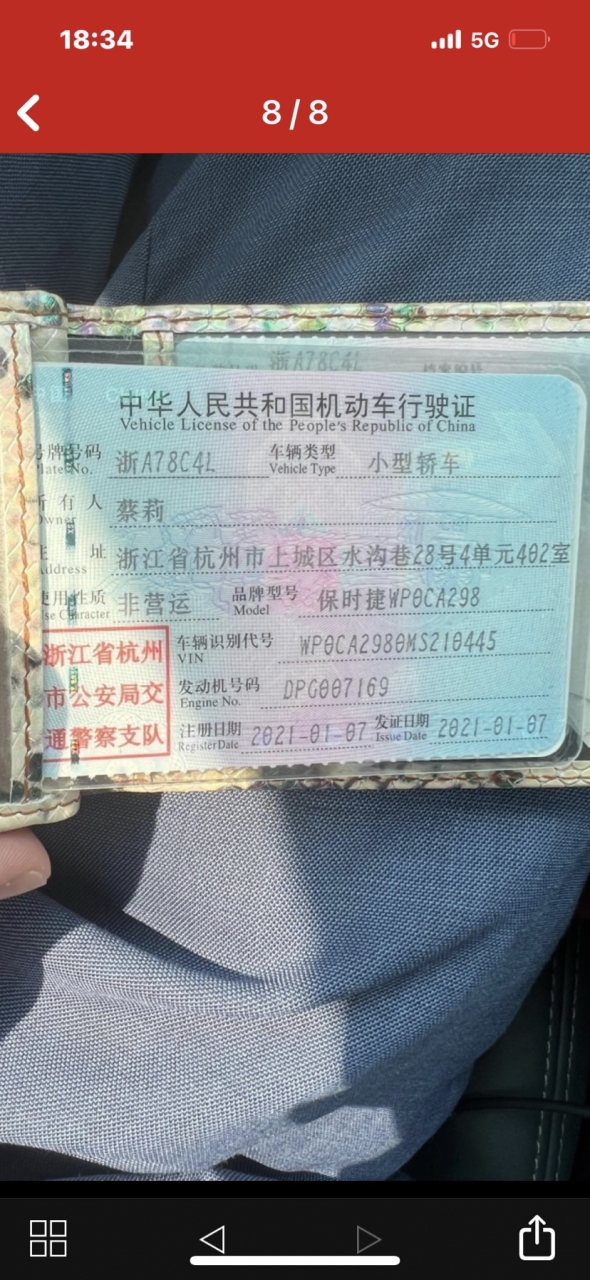 18:34
5G
8/8
浙A78C4L
中华人民共和国机动车行驶证
Vehicle License of the People's Republic of China
号牌号码 浙A78C4L 车辆类型 小型轿车
Plate No. Vehicle Type
所有人 蔡莉
Owner
住 址 浙江省杭州市上城区水沟巷28号4单元402室
Address
使用性质 非营运 品牌型号 保时捷WP0CA298
Use Character Model
浙江省杭州
市公安局交
通警察支队
车辆识别代号 WP0CA2980MS210445
VIN
发动机号码 DPG007169
Engine No.
注册日期 2021-01-07 发证日期 2021-01-07
Register Date Issue Date